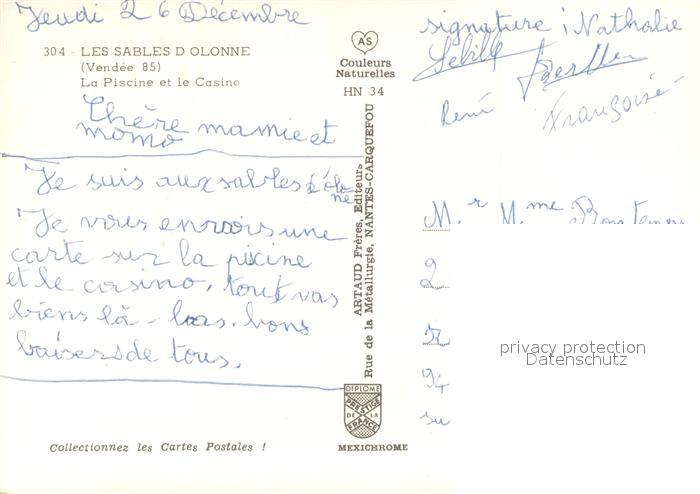 Jeudi 26 Décembre
304 - LES SABLES D OLONNE
(Vendée 85)
La Piscine et le Casino
Chère mamie et
momo
Je suis aux sables d'olo
ne
Je vous envois une
carte sur la picine
et le casino, tout vas
biens là - bas. bons
baisers de tous.
Collectionnez les Cartes Postales !
AS
Couleurs
Naturelles
HN 34
ARTAUD Frères, Editeurs
Rue de la Métallurgie, NANTES-CARQUEFOU
DIPLOME
PRESTIGE
DE LA
FRANCE
MEXICHROME
signature : Nathalie
René
Françoise
M.r M.me
2
94
su
privacy protection
Datenschutz